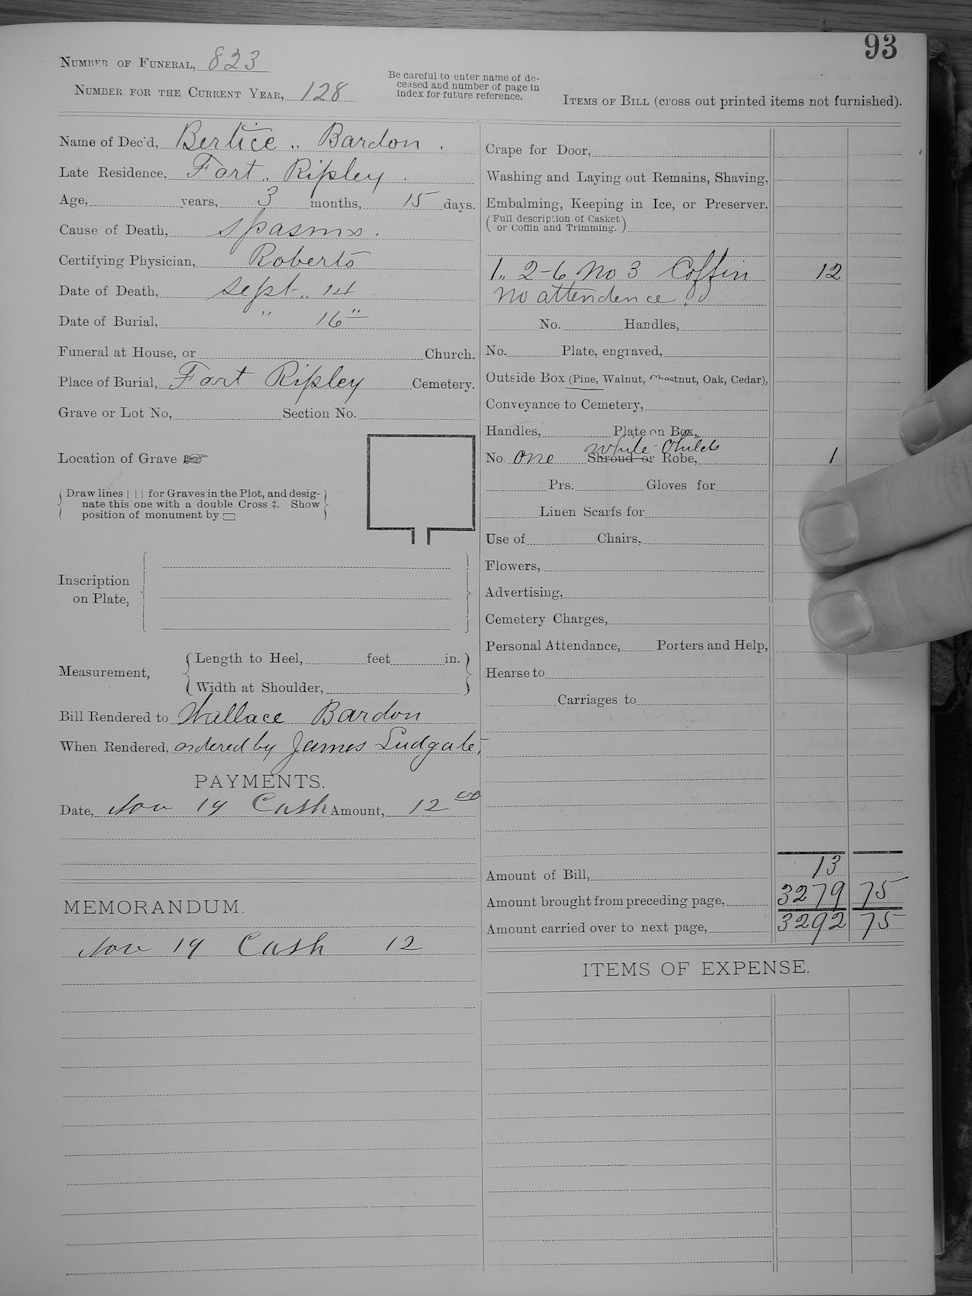 93
NUMBER OF FUNERAL, 823
NUMBER FOR THE CURRENT YEAR, 128
Be careful to enter name of de-
ceased and number of page in
index for future reference.
ITEMS OF BILL (cross out printed items not furnished).
Name of Dec'd, Bertice Bardon.
Late Residence, Fort Ripley.
Age, years, 3 months, 15 days.
Cause of Death, Spasms.
Certifying Physician, Roberts
Date of Death, Sept. 14
Date of Burial, " 16"
Funeral at House, or Church.
Place of Burial, Fort Ripley Cemetery.
Grave or Lot No, Section No.
Location of Grave ☞
Draw lines | | | for Graves in the Plot, and desig-
nate this one with a double Cross ‡. Show
position of monument by ▭
Inscription
on Plate,
Measurement,
Length to Heel, feet in.
Width at Shoulder,
Bill Rendered to Wallace Bardon
When Rendered, ordered by James Ludgate,
PAYMENTS.
Date, Nov 19 Cash Amount, 12 00
MEMORANDUM.
Nov 19 Cash 12
Crape for Door,
Washing and Laying out Remains, Shaving,
Embalming, Keeping in Ice, or Preserver.
(Full description of Casket
or Coffin and Trimming.)
1. 2-6 No 3 Coffin 12
no attendence.
No. Handles,
No. Plate, engraved,
Outside Box (Pine, Walnut, Chestnut, Oak, Cedar),
Conveyance to Cemetery,
Handles, Plate on Box,
White Childs
No. one Shroud or Robe, 1
Prs. Gloves for
Linen Scarfs for
Use of Chairs,
Flowers,
Advertising,
Cemetery Charges,
Personal Attendance, Porters and Help,
Hearse to
Carriages to
Amount of Bill, 13
Amount brought from preceding page, 3279 75
Amount carried over to next page, 3292 75
ITEMS OF EXPENSE.